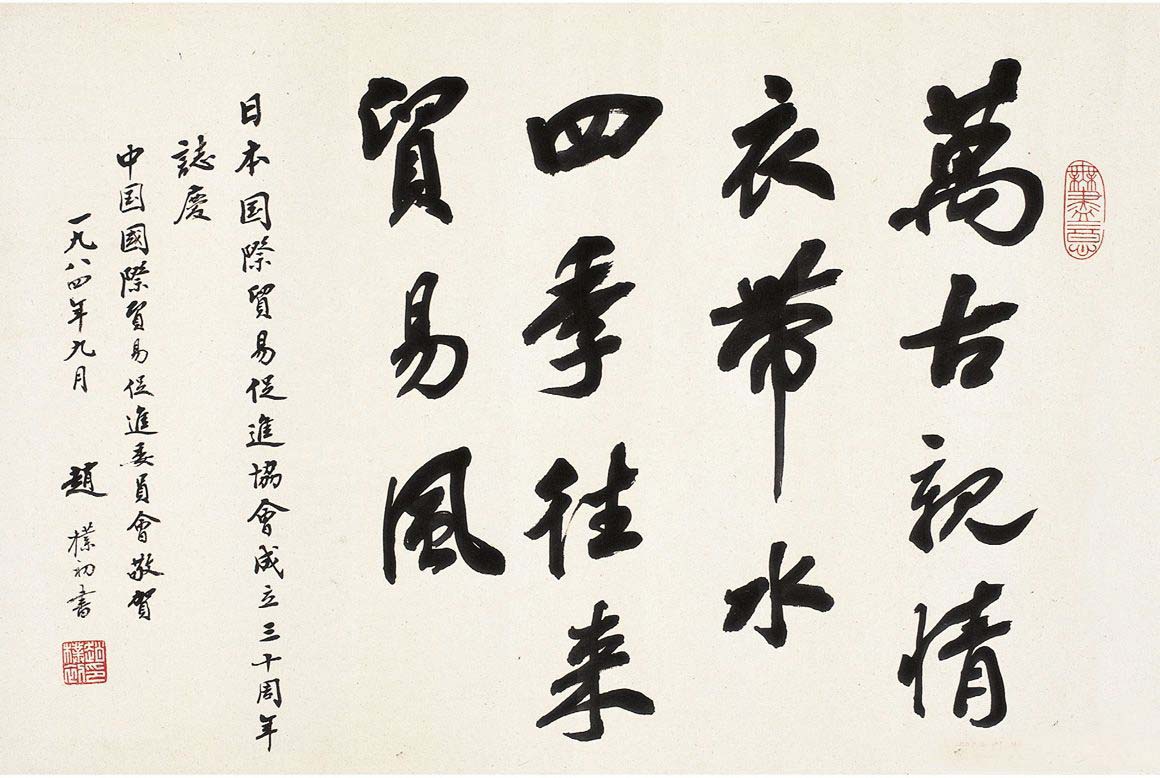 無盡意
萬古親情
衣帶水
四季往来
貿易風
日本国際貿易促進協會成立三十周年
誌慶
中国國際貿易促進委員會敬賀
一九八四年九月 趙樸初書
趙樸初印